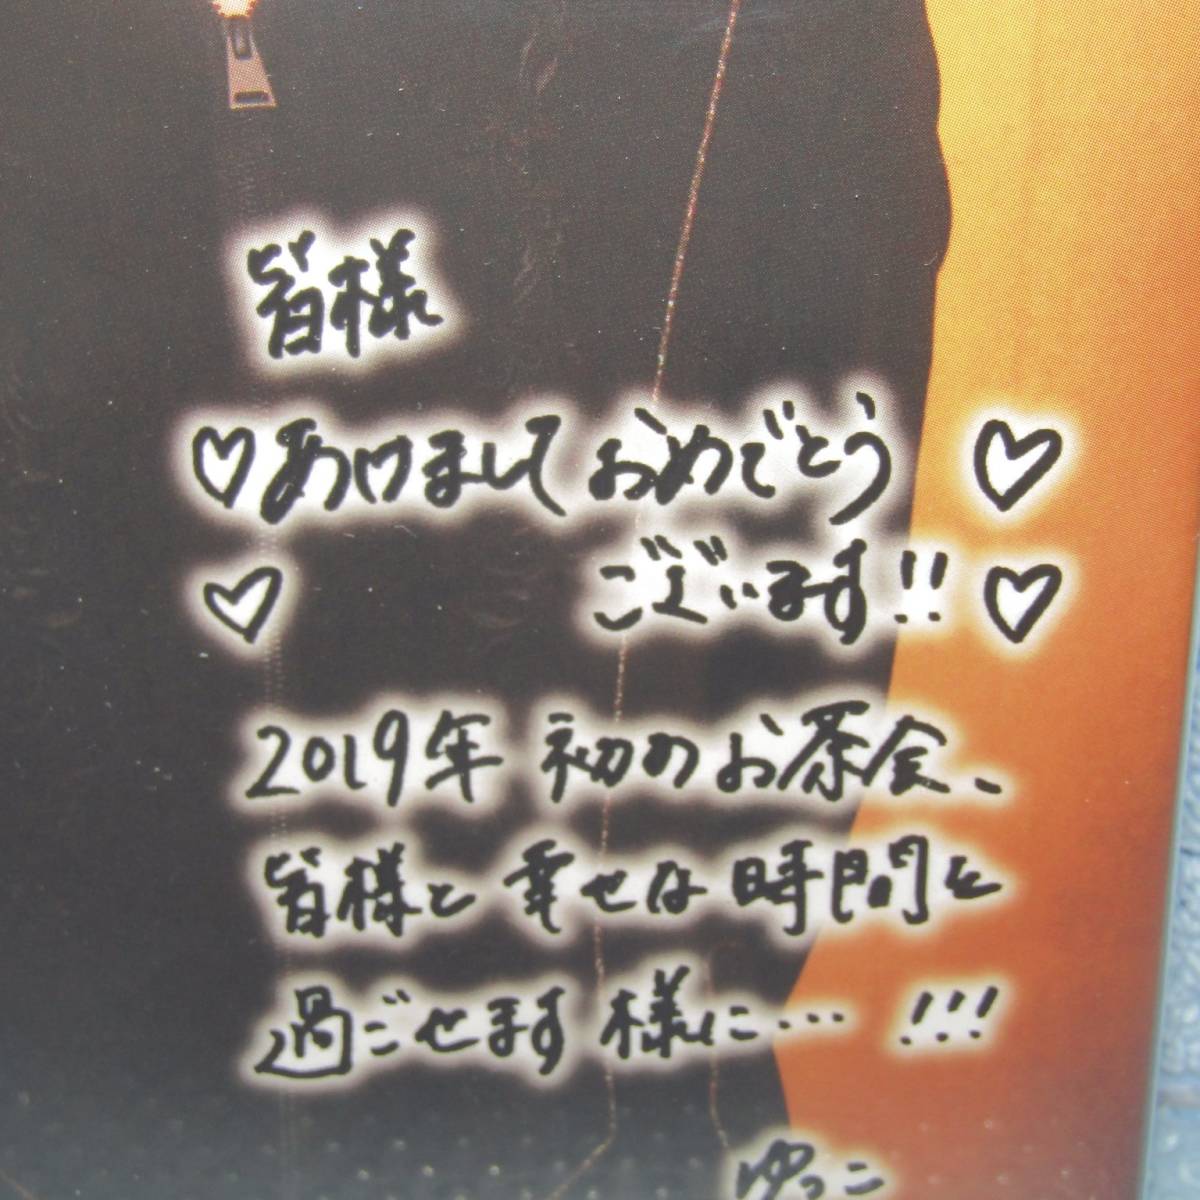 皆様
♡あけましておめでとう♡
♡ございます!!♡
2019年 初めのお茶会、
皆様と幸せな時間を
過ごせます様に…!!!
ゆっこ